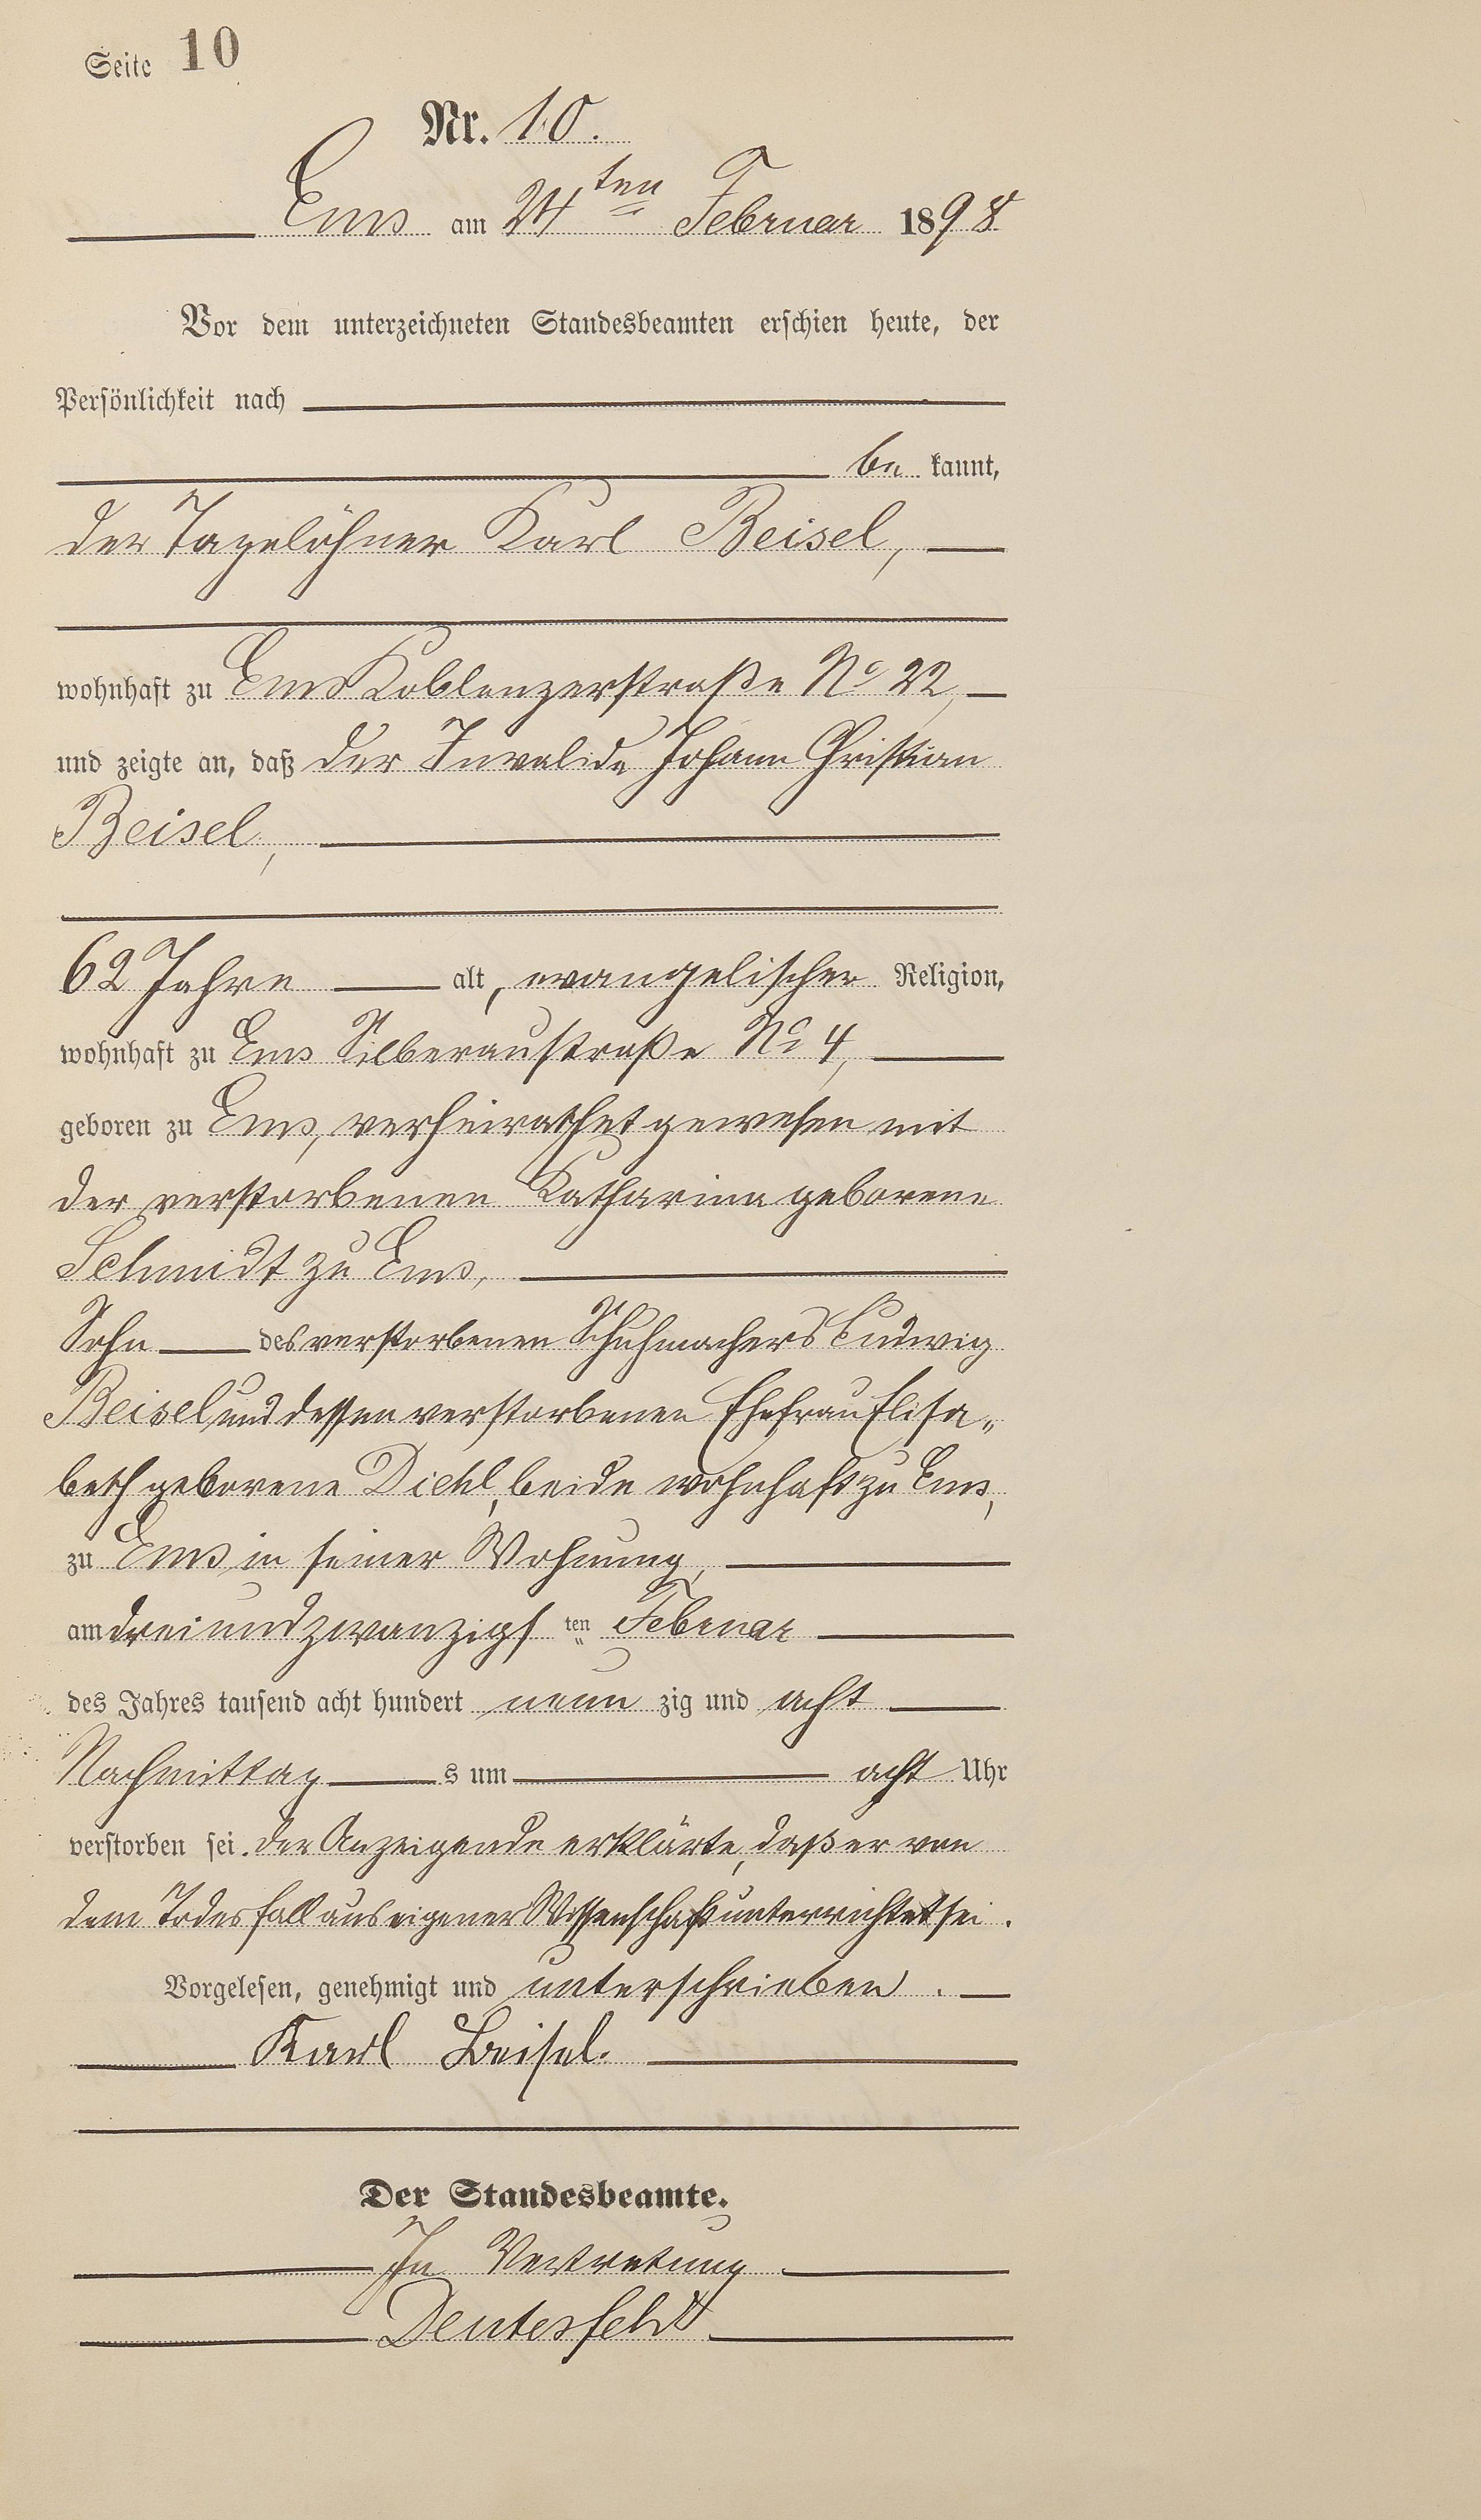 Seite 10
Nr. 10.
Ems am 24ten Februar 1898
Vor dem unterzeichneten Standesbeamten erschien heute, der
Persönlichkeit nach
be kannt,
der Tagelöhner Karl Beisel,
wohnhaft zu Ems Koblenzerstraße No 22,
und zeigte an, daß der Invalide Johann Christian
Beisel,
62 Jahre alt, evangelischer Religion,
wohnhaft zu Ems Silberaustraße No 4,
geboren zu Ems, verheirathet gewesen mit
der verstorbenen Katharina geborene
Schmidt zu Ems,
Sohn des verstorbenen Schuhmachers Ludwig
Beisel und dessen verstorbenen Ehefrau Elisa„
beth geborene Diehl, beide wohnhaft zu Ems,
zu Ems in seiner Wohnung,
am dreiundzwanzigs ten Februar
des Jahres tausend acht hundert neun zig und acht
Nachmittag s um acht Uhr
verstorben sei. Der Anzeigende erklärte, daß er von
dem Todesfall aus eigener Wissenschaft unterrichtet sei.
Vorgelesen, genehmigt und unterschrieben.
Karl Beisel.
Der Standesbeamte.
In Vertretung
Deutesfeld